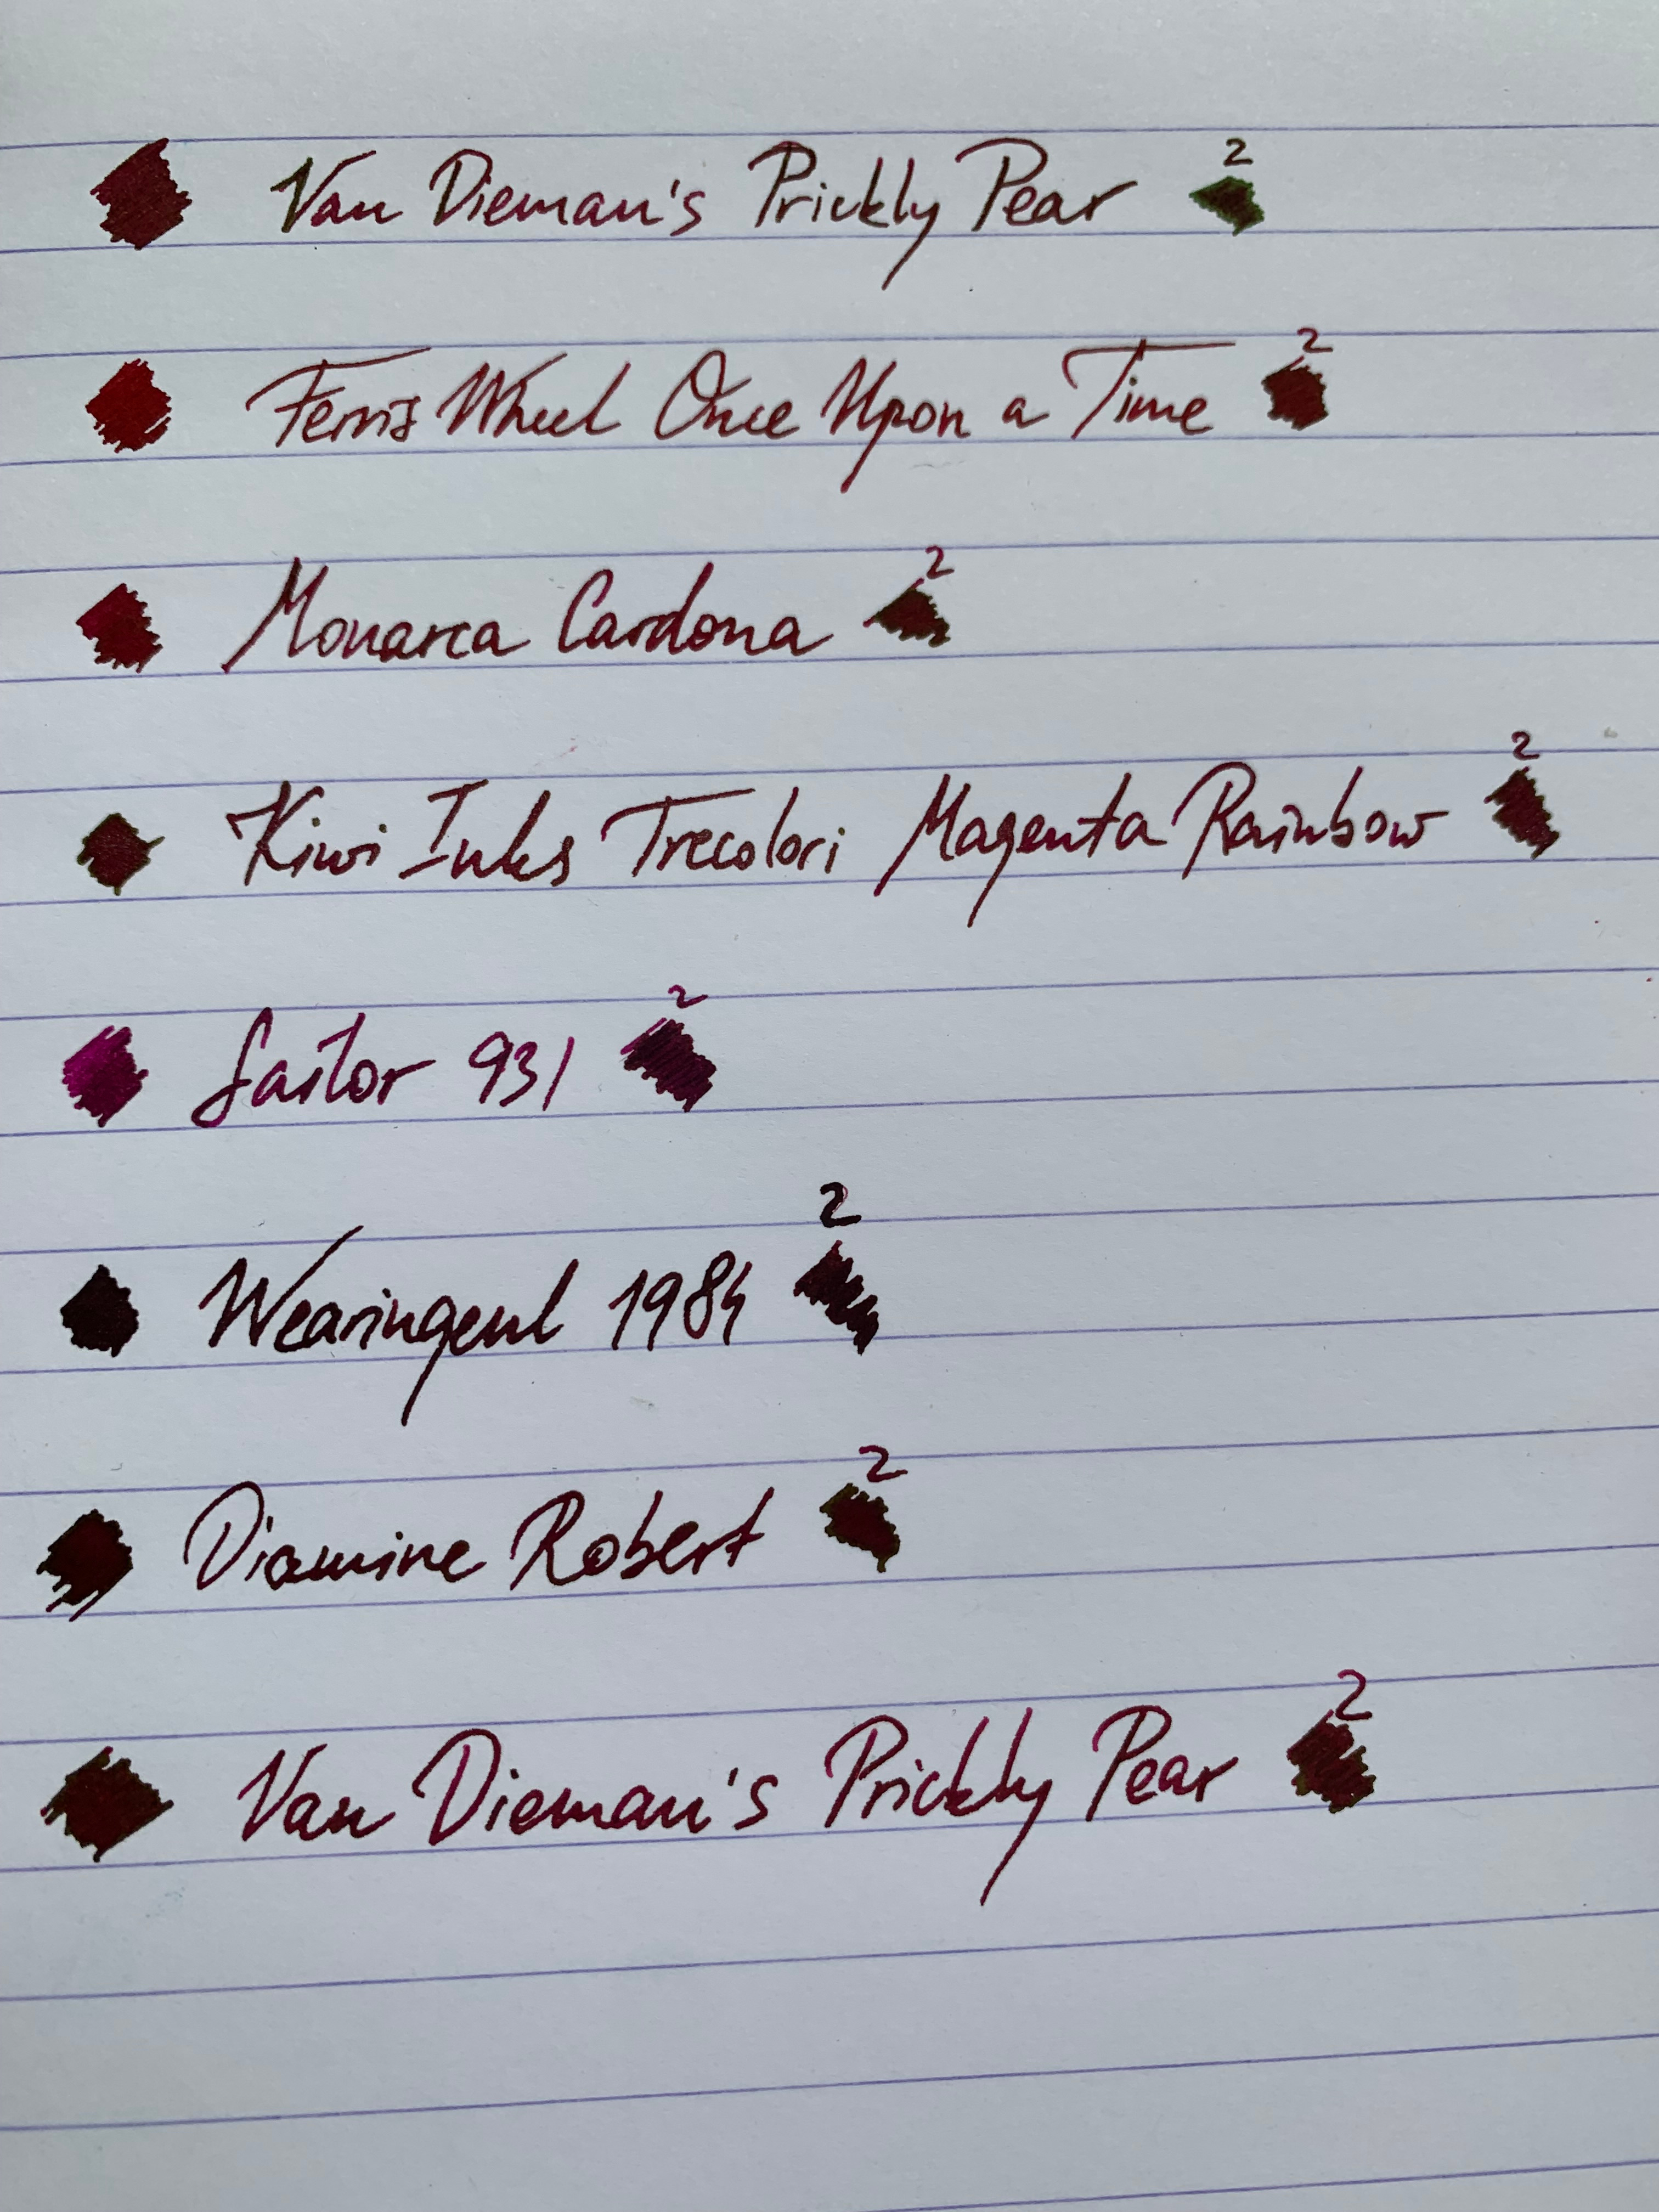 Van Dieman's Prickly Pear 2
Ferris Wheel Once Upon a Time 2
Monarca Cardona 2
Kiwi Inks Trecolori Magenta Rainbow 2
Sailor 931 2
Wearingeul 1984 2
Diamine Robert 2
Van Dieman's Prickly Pear 2